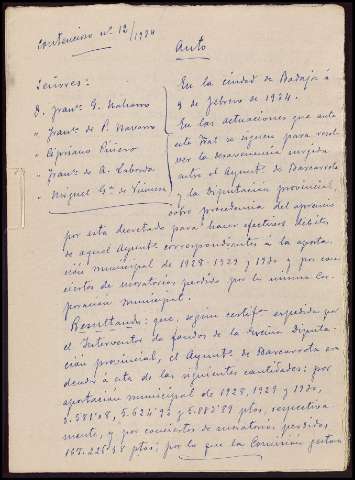 Contencioso nº 12/1934
Auto
Señores:
D. Franco G. Naharro
" Franco de P. Navarro
" Cipriano Piñero
" Franco de A. Laborda
" Miguel Gª de
En la ciudad de Badajoz á
9 de febrero de 1934.
En las actuaciones que ante
este Tral se siguen para resol-
ver la desavenencia surgida
entre el Ayuntº de Barcarrota
y la Diputación provincial,
sobre procedencia del apremio
por esta decretado para hacer efectivos débitos
de aquel Ayuntº correspondientes a la aporta-
ción municipal de 1928-1929 y 1930 y por con-
ciertos de moratorias perdidos por la misma Cor-
poración municipal.
Resultando: que, según certifº expedida por
el Interventor de fondos de la Excma Diputa-
ción provincial, el Ayuntº de Barcarrota a-
deuda á esta de las siguientes cantidades: por
aportación municipal de 1928, 1929 y 1930,
5.624'93 y 5.883'89 ptas, respectiva-
mente, y por conciertos de moratorias perdidos
ptas; por lo que la Comisión gestora